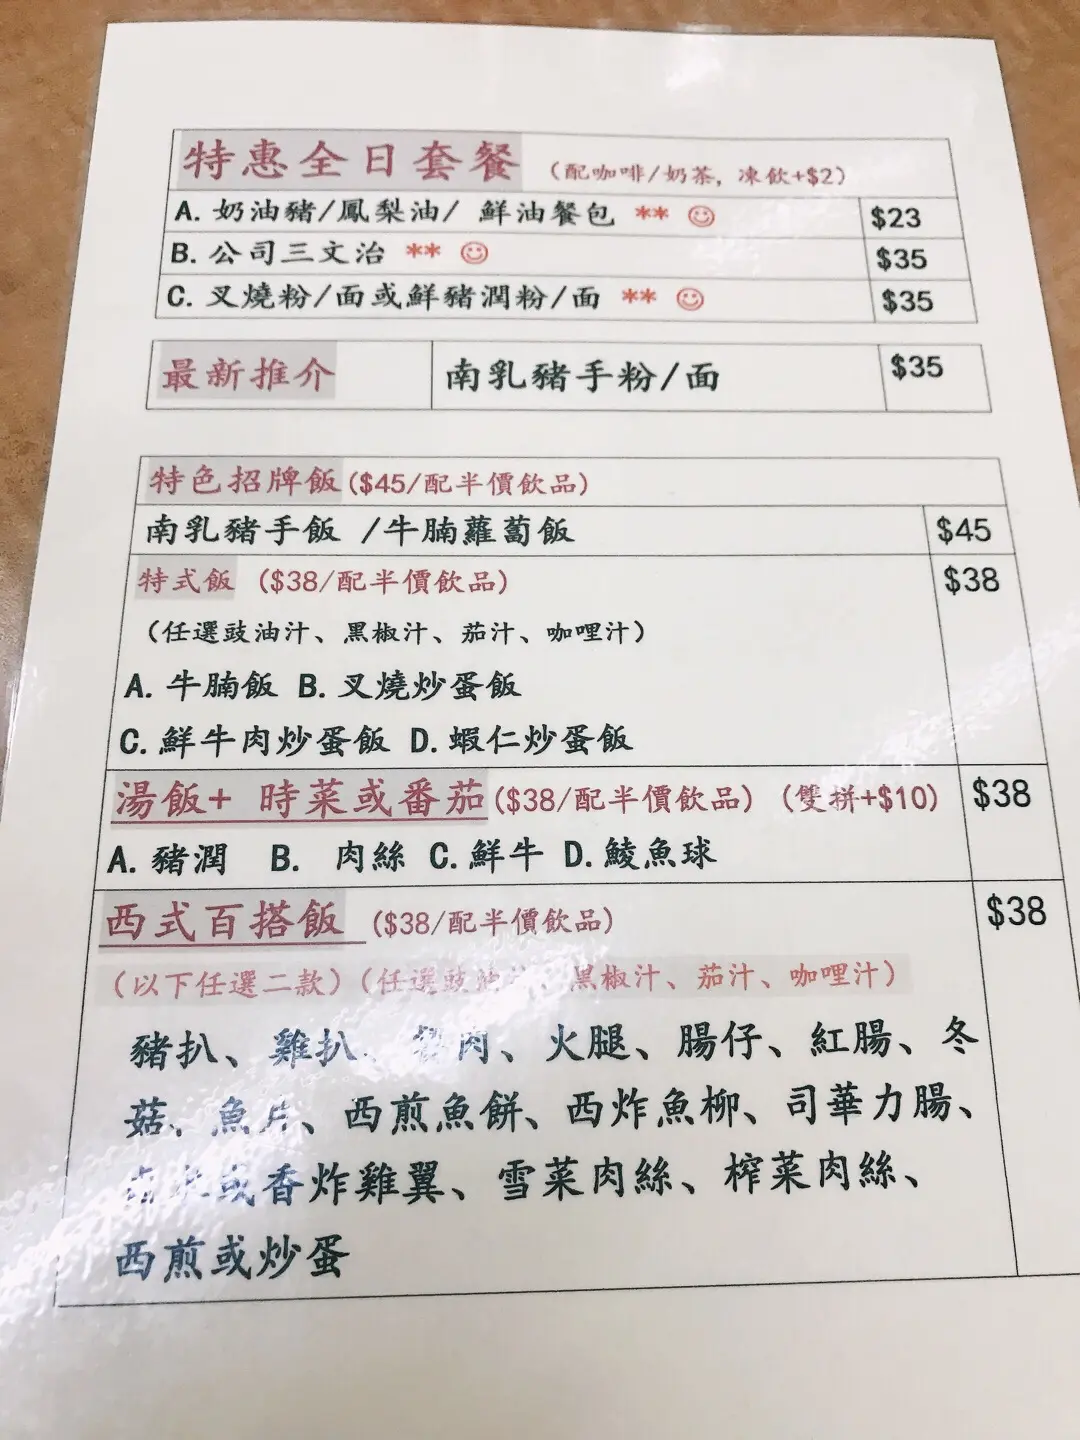 特惠全日套餐 (配咖啡/奶茶, 凍飲+$2)
A. 奶油豬/鳳梨油/ 鮮油餐包 ** ☺ $23
B. 公司三文治 ** ☺ $35
C. 叉燒粉/面或鮮豬潤粉/面 ** ☺ $35
最新推介 南乳豬手粉/面 $35
特色招牌飯($45/配半價飲品)
南乳豬手飯 /牛腩蘿蔔飯 $45
特式飯 ($38/配半價飲品) $38
(任選豉油汁、黑椒汁、茄汁、咖哩汁)
A. 牛腩飯 B. 叉燒炒蛋飯
C. 鮮牛肉炒蛋飯 D. 蝦仁炒蛋飯
湯飯+ 時菜或番茄($38/配半價飲品) (雙拼+$10) $38
A. 豬潤 B. 肉絲 C. 鮮牛 D. 鯪魚球
西式百搭飯 ($38/配半價飲品) $38
(以下任選二款)(任選豉油汁、黑椒汁、茄汁、咖哩汁)
豬扒、雞扒、肉、火腿、腸仔、紅腸、冬
菇、魚片、西煎魚餅、西炸魚柳、司華力腸、
或香炸雞翼、雪菜肉絲、榨菜肉絲、
西煎或炒蛋